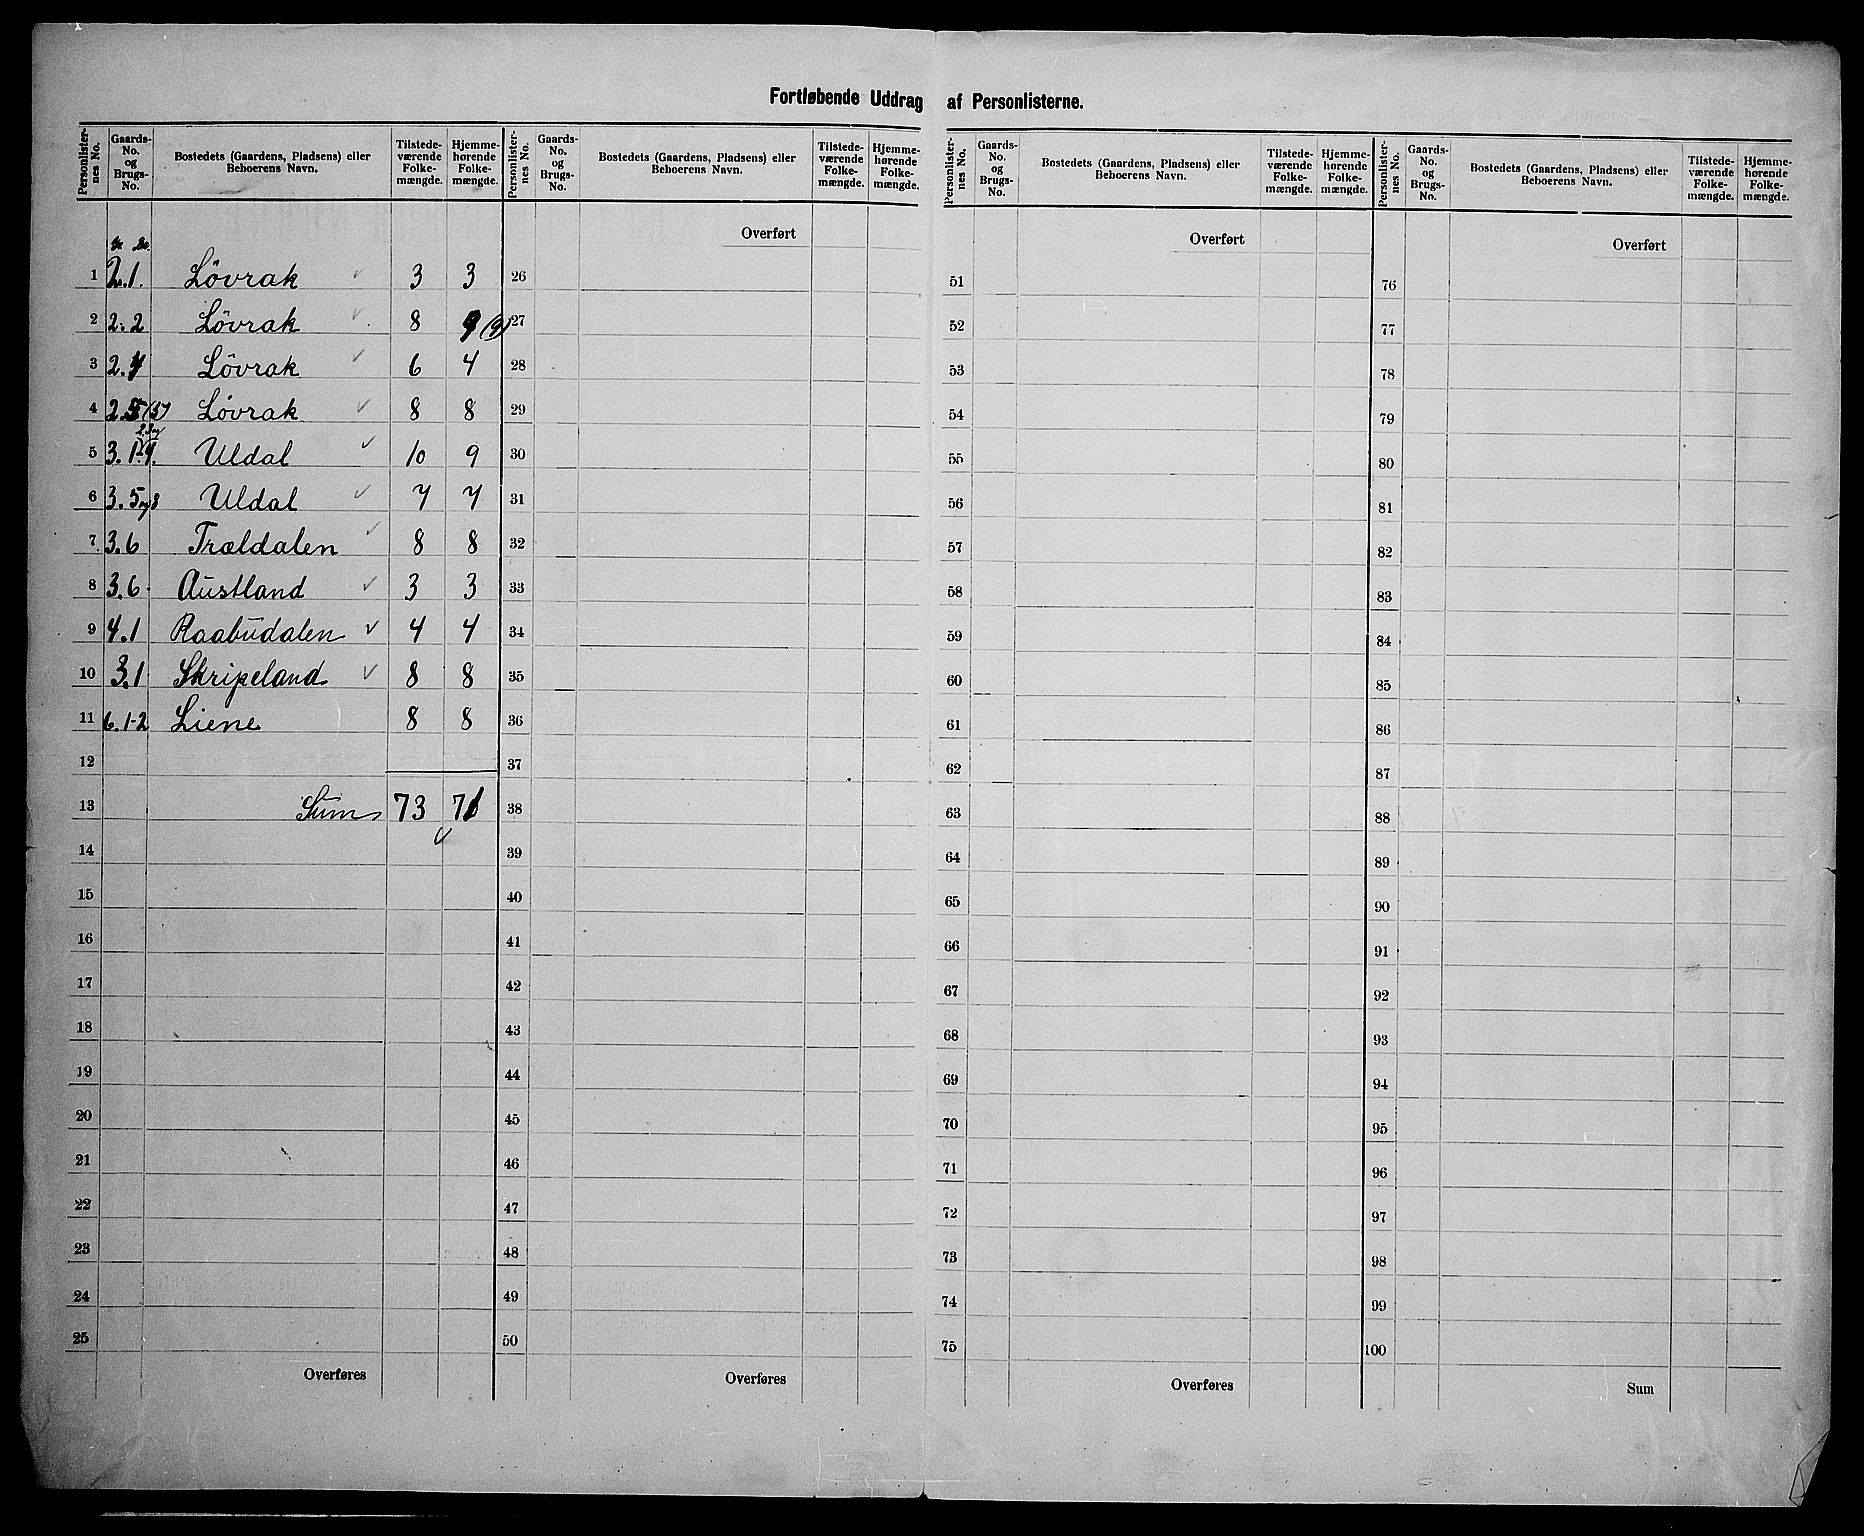 Fortløbende Uddrag af Personlisterne.
Personlister-nes No. Gaards-No. og Brugs-No. Bostedets (Gaardens, Pladsens) eller Beboerens Navn. Tilstede-værende Folke-mængde. Hjemme-hørende Folke-mængde.
Gr. Br.
1 2.1. Lövrak 3 3
2 2.2 Lövrak 8 9 (9)
3 2.4 Lövrak 6 4
4 2.5 (5) Lövrak 8 8
5 3.1 Uldal 10 9
6 3.5 og 8 Uldal 7 7
7 3.6 Træaldalen 8 8
8 3.6 Austland 3 3
9 4.1 Raabudalen 4 4
10 3.1 Skripeland 8 8
11 6.1-2 Liene 8 8
12
13 Sum 73 71
14
15
16
17
18
19
20
21
22
23
24
25
Overføres
Personlister-nes No. Gaards-No. og Brugs-No. Bostedets (Gaardens, Pladsens) eller Beboerens Navn. Tilstede-værende Folke-mængde. Hjemme-hørende Folke-mængde.
Overført
26
27
28
29
30
31
32
33
34
35
36
37
38
39
40
41
42
43
44
45
46
47
48
49
50
Overføres
Personlister-nes No. Gaards-No. og Brugs-No. Bostedets (Gaardens, Pladsens) eller Beboerens Navn. Tilstede-værende Folke-mængde. Hjemme-hørende Folke-mængde.
Overført
51
52
53
54
55
56
57
58
59
60
61
62
63
64
65
66
67
68
69
70
71
72
73
74
75
Overføres
Personlister-nes No. Gaards-No. og Brugs-No. Bostedets (Gaardens, Pladsens) eller Beboerens Navn. Tilstede-værende Folke-mængde. Hjemme-hørende Folke-mængde.
Overført
76
77
78
79
80
81
82
83
84
85
86
87
88
89
90
91
92
93
94
95
96
97
98
99
100
Sum